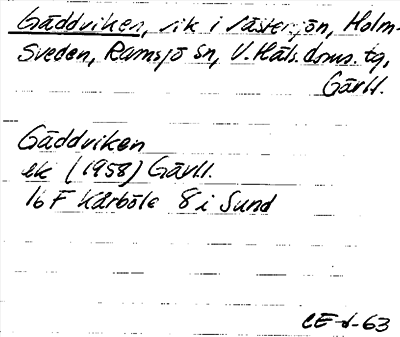 Gäddviken, vik i Västersjön, Holm-
Sveden, Ramsjö sn, V. Häls. doms. tg,
Gävll.
Gäddviken
ek (1958) Gävll.
16 F Kårböle 8 i Sund
CE-d-63